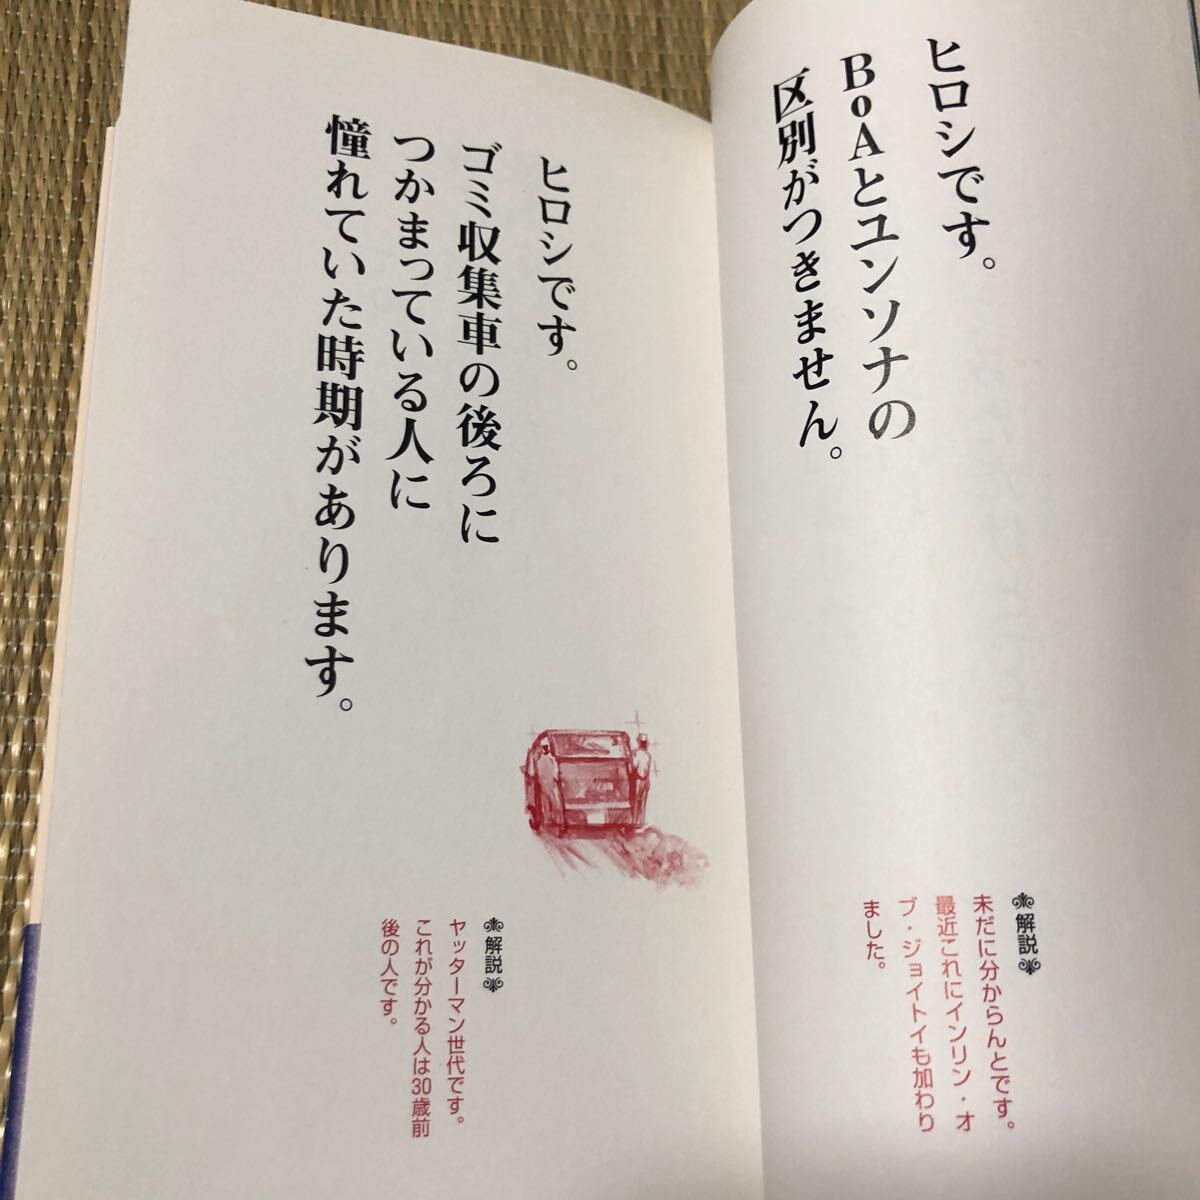 ヒロシです。
BoAとユンソナの
区別がつきません。
解説
未だに分からんとです。
最近これにインリン・オ
ブ・ジョイトイも加わり
ました。
ヒロシです。
ゴミ収集車の後ろに
つかまっている人に
憧れていた時期があります。
解説
ヤッターマン世代です。
これが分かる人は30歳前
後の人です。